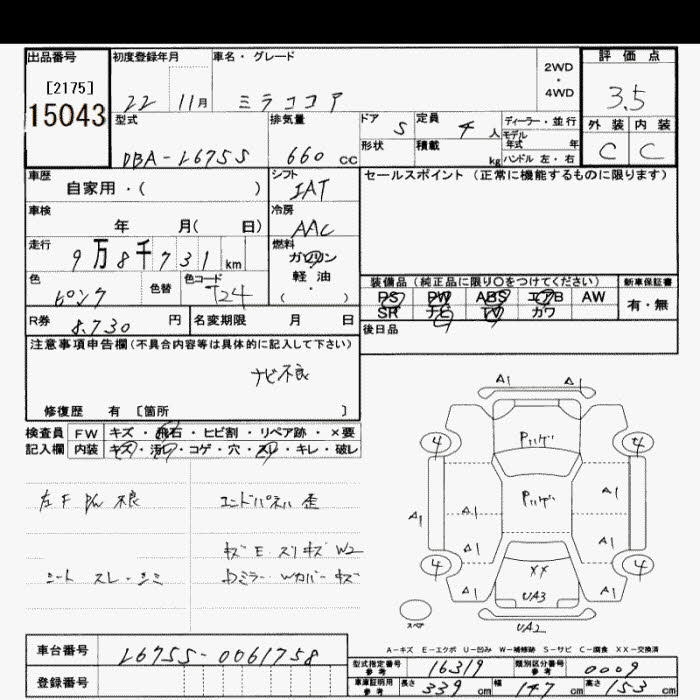 出品番号
[2175]
15043
初度登録年月
22 11月
車名・グレード
ミラココア
2WD
・
4WD
評価点
3.5
外装 内装
C C
型式
DBA-L675S
排気量
660 cc
ドア 5
定員 4 人
形状
積載 kg
ディーラー・並行
モデル年式 年
ハンドル 左・右
車歴
自家用・( )
シフト
IAT
セールスポイント (正常に機能するものに限ります)
車検
年 月( 日)
冷房
AAC
走行
9万8千731 km
燃料
ガソリン
軽油
( ・ )
色
ピンク
色替
色コード
T24
装備品 (純正品に限り○をつけてください)
PS PW ABS エアB AW
SR ナビ TV カワ
新車保証書
有・無
R券 8.730 円
名変期限 月 日
後日品
注意事項申告欄(不具合内容等は具体的に記入して下さい)
ナビ不良
修復歴 有 〔箇所 〕
検査員 FW キズ・飛石・ヒビ割・リペア跡・×要
記入欄 内装 キズ・汚レ・コゲ・穴・スレ・キレ・破レ
左F P/W 不良
エンドパネル 歪
キズ E スリキズ W2
シート スレ・シミ
Wカバー キズ
A1 A1
Pハゲ
4 4
Pハゲ
A1
A1 A1
A1
A1 A1
4 4
××
A1 A1
UA3
スペア
UA2
A-キズ E-エクボ U-凹み W-補修跡 S-サビ C-腐食 XX-交換済
車台番号 L675S-0061758
登録番号
型式指定番号 参考 16319
類別区分番号 参考 0009
車庫証明用 参考 長さ 339 cm 幅 147 cm 高さ 153 cm